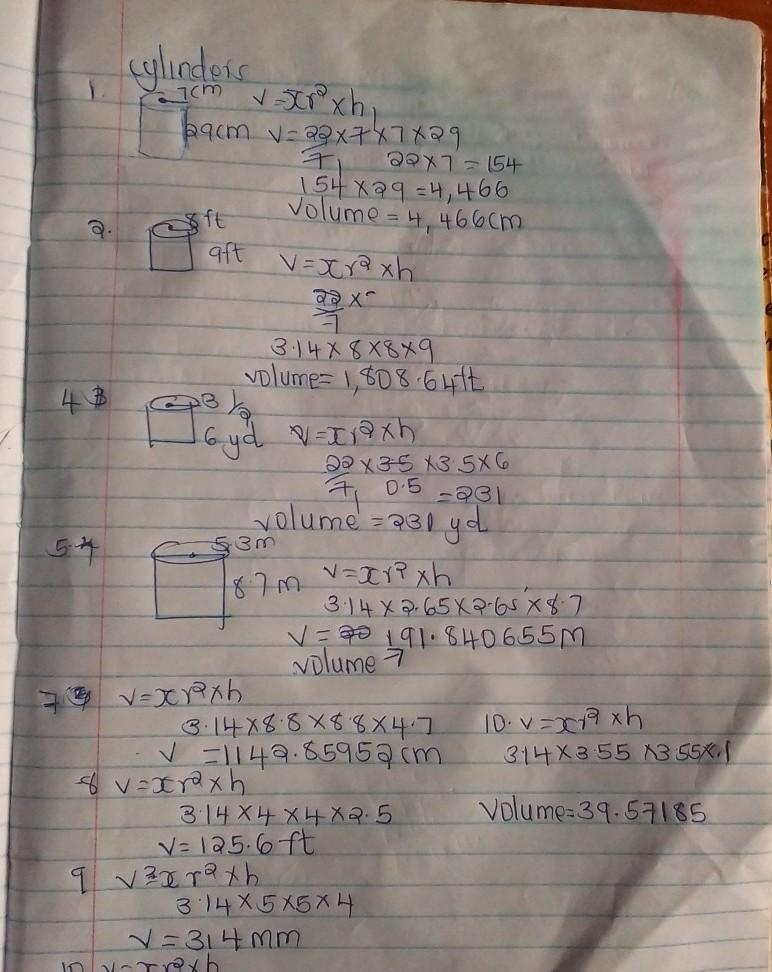 cylinders
1. 7cm V=πr²×h
29cm V=22×7×7×29
7 22×7=154
154×29=4,466
Volume=4,466cm
2. 8ft
9ft V=πr²×h
22×
7
3.14×8×8×9
volume=1,808.64ft
4 3 1/2
6yd V=πr²×h
22×3.5×3.5×6
7 0.5 =231
volume=231yd
5. 5.3m
8.7m V=πr²×h
3.14×2.65×2.65×8.7
V= 191.840655m
volume
7 V=πr²×h
3.14×8.8×8.8×4.7 10. V=πr²×h
V=1142.85952cm 3.14×3.55×3.55×.1
8 V=πr²×h
3.14×4×4×2.5 Volume=39.57185
V=125.6ft
9 V=πr²×h
3.14×5×5×4
V=314mm
10 V=πr²×h